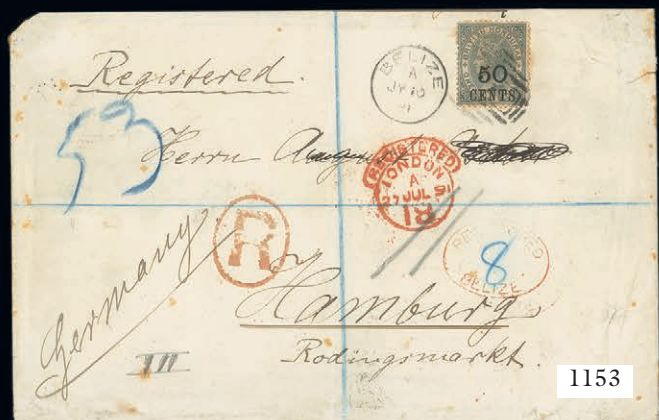 Registered.
BELIZE
A
JY 10
91
BRITISH HONDURAS
50
CENTS
53
Herrn August
REGISTERED
LONDON
A
27 JUL 91
18
R
REGISTERED
8
BELIZE
Germany
Hamburg.
Rodingsmarkt.
III
1153